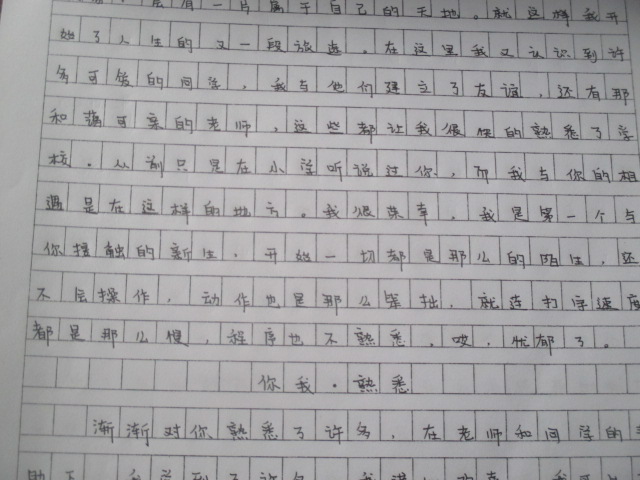 有一片属于自己的天地。就这样我开
始了人生的又一段旅途。在这里我又认识到许
多可爱的同学，我与他们建立了友谊，还有那
和蔼可亲的老师，这些都让我很快的熟悉了学
校。从前只是在小学听说过你，而我与你的相
遇是在这样的地方。我很荣幸，我是第一个与
你接触的新生，开始一切都是那么的陌生，还
不会操作，动作也是那么笨拙，就连打字速度
都是那么慢，程序也不熟悉，哎，忧郁了。
你我·熟悉
渐渐对你熟悉了许多，在老师和同学的